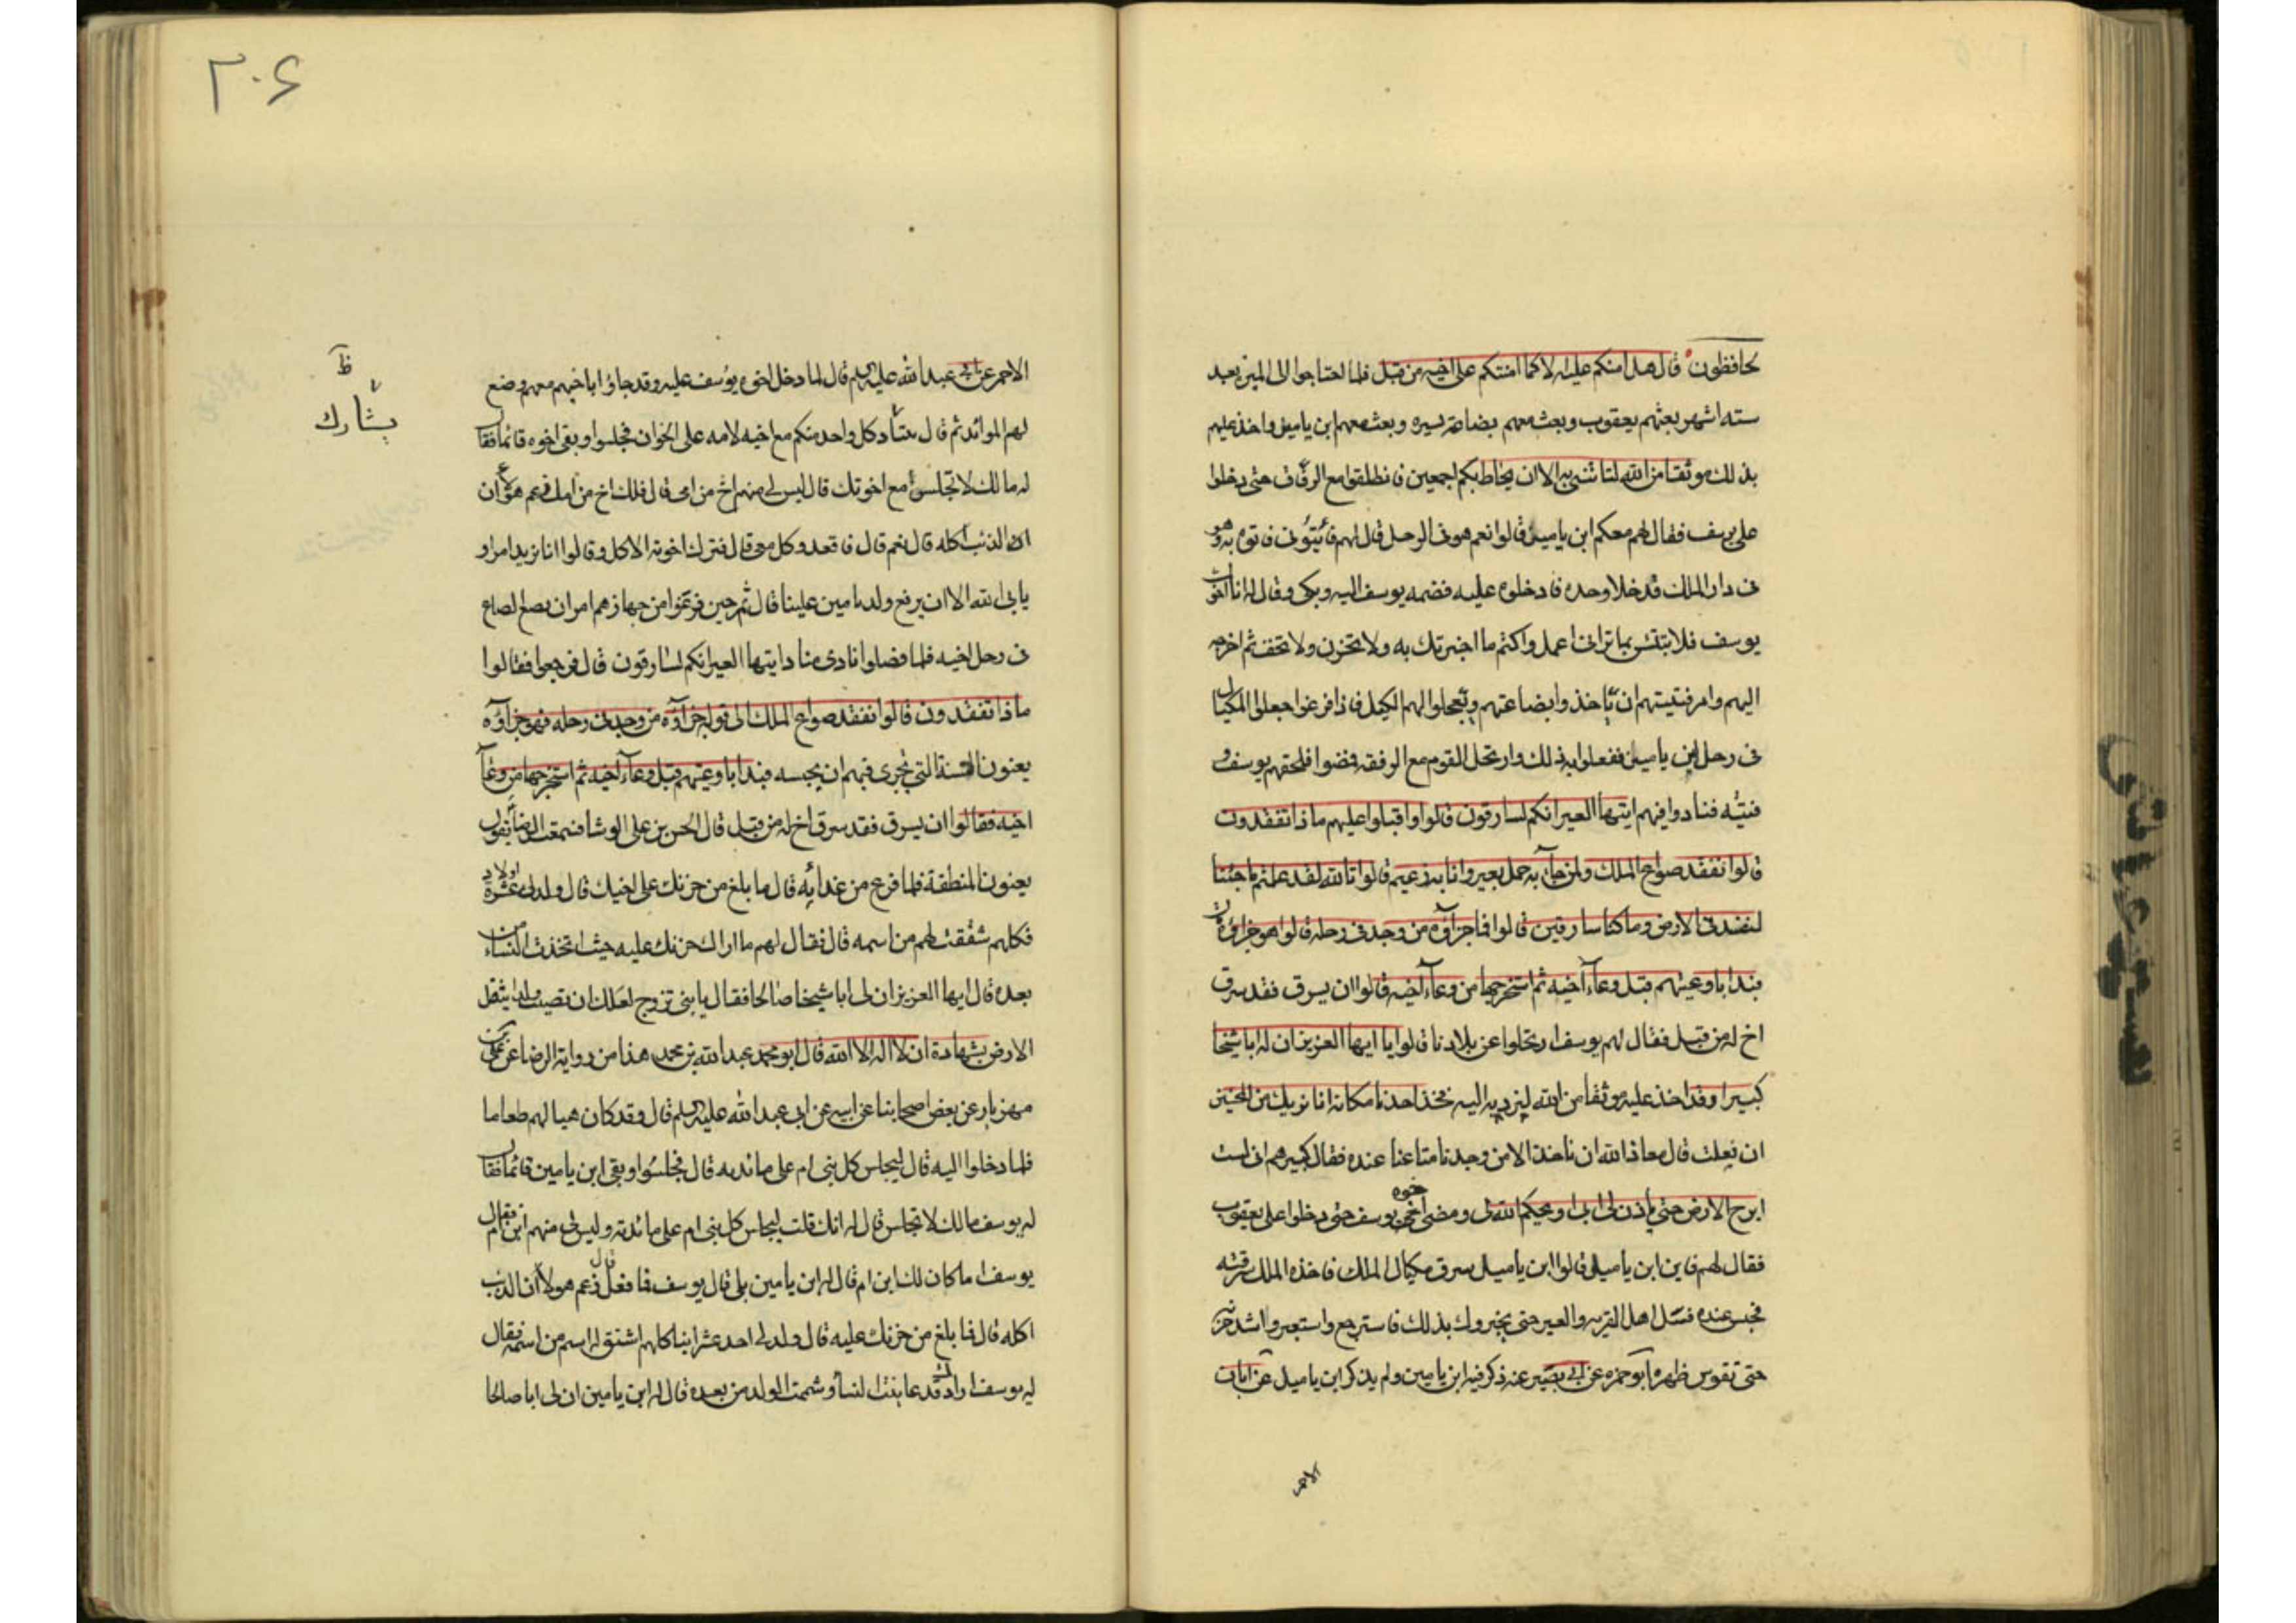 لحافظون قال هل امنكم عليه الا كما امنتكم على اخيه من قبل فلما احتاجوا الى الميرة بعد
ستة اشهر بعثهم يعقوب وبعث معهم بضاعة يسيرة وبعث معهم ابن ياميل واخذ عليهم
بذلك موثقا من الله لتأتننى به الا ان يحاط بكم اجمعين فانطلقوا مع الرفاق حتى دخلوا
على يوسف فقال لهم معكم ابن ياميل قالوا نعم هو فى الرحل قال لهم فأتونى فاتوه به وهو
فى دار الملك قد خلا وحده فادخلوه عليه فضمه يوسف اليه وبكى وقال له انا اخوك
يوسف فلا تبتئس بما ترانى اعمل واكتم ما اخبرتك به ولا تحزن ولا تخف ثم اخرجه
اليهم وامر فتيته ان يأخذوا بضاعتهم ويعجلوا لهم الكيل فاذا فرغوا جعلوا المكيال
فى رحل ابن ياميل ففعلوا به ذلك وارتحل القوم مع الرفقة فمضوا فلحقهم يوسف و
فتيته فنادوا فيهم ايتها العير انكم لسارقون قالوا واقبلوا عليهم ماذا تفقدون
قالوا نفقد صواع الملك ولمن جآء به حمل بعير وانا به زعيم قالوا تالله لقد علمتم ما جئنا
لنفسد فى الارض وما كنا سارقين قالوا فما جزآؤه من وجد فى رحله قالوا هو جزاؤه
فبدا باوعيتهم قبل وعآء اخيه ثم استخرجها من وعآء اخيه قالوا ان يسرق فقد سرق
اخ له من قبل فقال لهم يوسف ارتحلوا عن بلادنا قالوا يا ايها العزيز ان له ابا شيخا
كبيرا وقد اخذ عليه موثقا من الله لنرد به اليه فخذ احدنا مكانه انا نريك من المحسنين
ان فعلت قال معاذ الله ان ناخذ الا من وجدنا متاعنا عنده فقال كبيرهم انى لست
ابرح الارض حتى يأذن لى ابى او يحكم الله لى ومضى اخوه يوسف حتى دخلوا على يعقوب
فقال لهم فاين ابن ياميل قالوا ابن ياميل سرق مكيال الملك فاخذه الملك بسرقته
فحبس عنده فسئل اهل القرية والعير حتى يخبروك بذلك فاسترجع واستعبر واشتد حزنه
حتى تقوس ظهره ابو حمزه عن ابى بصير عنه ذكر فيه ابن يامين ولم يذكر ابن ياميل عن ابان
الاحمر
۲۰۶
الاحمر عن ابى عبد الله عليه السلم قال لما دخل اخوة يوسف عليه وقد جاؤا باخيهم معهم وضع
لهم الموائد ثم قال يمتأد كل واحد منكم مع اخيه لامه على الخوان فجلسوا وبقى اخوه قائما فقال
له ما لك لا تجلس مع اخوتك قال ليس لى منهم اخ من امى قال فلك اخ من امك زعم هؤلآء ان
الذئب اكله قال نعم قال فاقعد وكل معى قال فترك اخوته الاكل وقالوا انا نريد امرا و
يابى الله الا ان يرفع ولد يامين علينا قال ثم حين فرغوا من جهازهم امر ان يضع الصاع
فى رحل اخيه فلما فصلوا نادى مناد ايتها العير انكم لسارقون قال فرجعوا فقالوا
ماذا تفقدون قالوا نفقد صواع الملك الى قوله جزآؤه من وجد فى رحله فهو جزآؤه
يعنون السنة التى تجرى فيهم ان يحبسه فبدا باوعيتهم قبل وعآء اخيه ثم استخرجها من وعآء
اخيه فقالوا ان يسرق فقد سرق اخ له من قبل قال الحسن بن على الوشا فسمعت الرضا يقول
يعنون المنطقة فلما فرغ من غدائه قال ما بلغ من حزنك على اخيك قال ولد لى عشرة اولاد
فكلهم شققت لهم من اسمه قال فقال لهم ما اراك حزنت عليه حيث اتخذت النساء من
بعده قال ايها العزيز ان لى ابا شيخا صالحا فقال يا بنى تزوج لعلك ان تصيب ولدا يثقل
الارض بشهادة ان لا اله الا الله قال ابو محمد عبد الله بن محمد هذا من رواية الرضا عن على بن
مهزيار عن بعض اصحابنا عن ابيه عن ابى عبد الله عليه السلم قال وقد كان هيا لهم طعاما
فلما دخلوا اليه قال ليجلس كل بنى ام على مائدة قال فجلسوا وبقى ابن يامين قائما فقال
له يوسف مالك لا تجلس قال له انك قلت ليجلس كل بنى ام على مائدة وليس لى منهم ابن ام فقال
يوسف اما كان لك ابن ام قال له ابن يامين بلى قال يوسف فما فعل قال زعم هولاء ان الذئب
اكله قال فما بلغ من حزنك عليه قال ولد لى احد عشر ابنا كلهم اشتق له اسم من اسمه فقال
له يوسف اراك قد عانقت النسآء وشممت الولد من بعده قال له ابن يامين ان لى ابا صالحا
ظ
يشارك